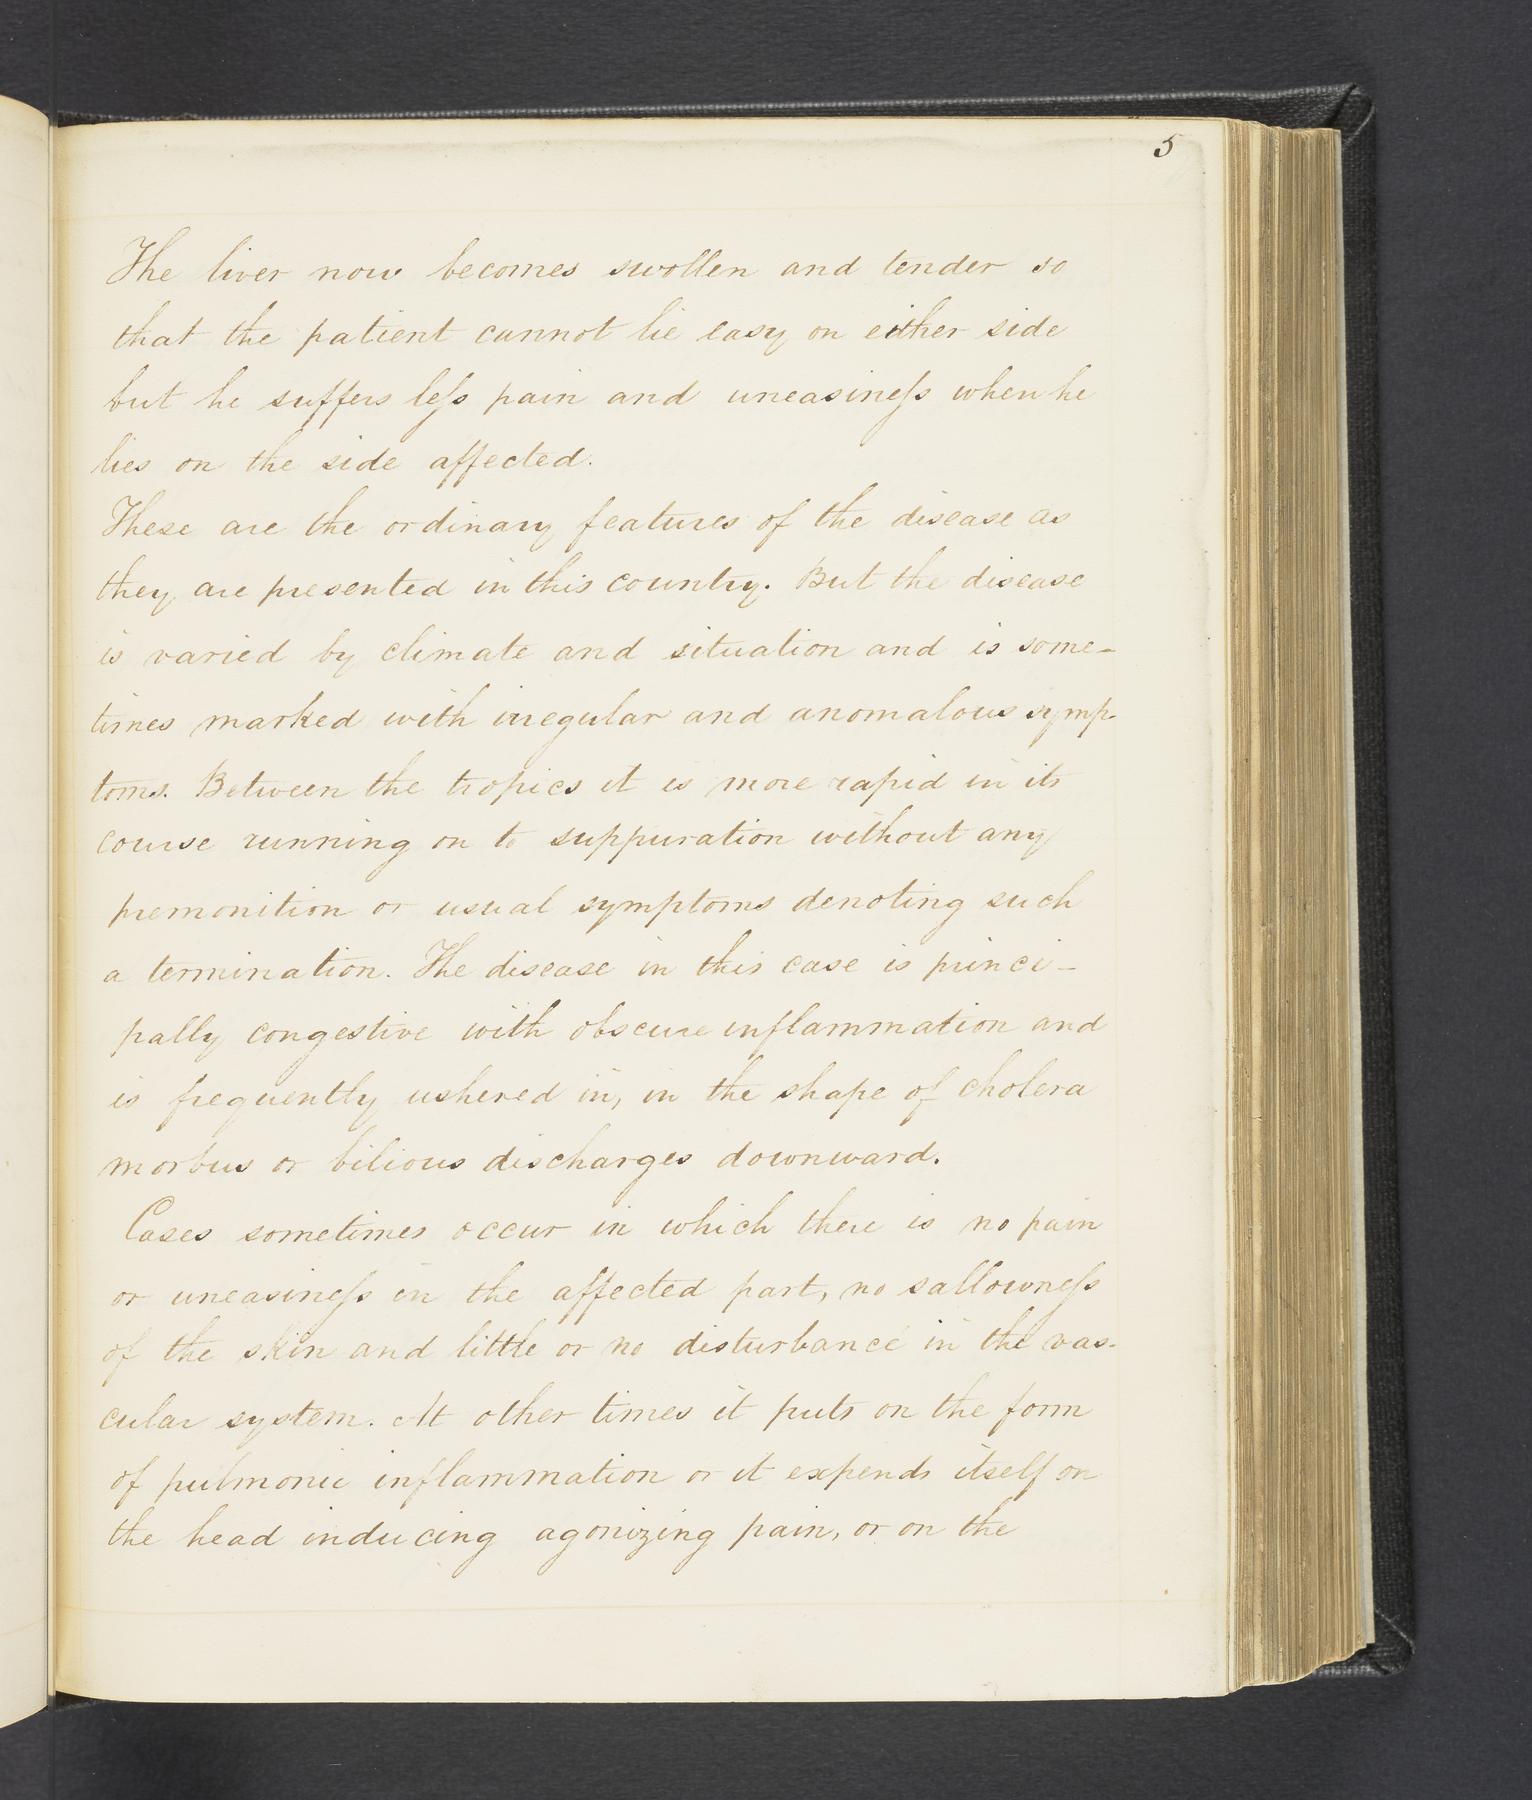 5
The liver now becomes swollen and tender so
that the patient cannot lie easy on either side
but he suffers leſs pain and uneasineſs when he
lies on the side affected.
These are the ordinary features of the disease as
they are presented in this country. But the disease
is varied by climate and situation and is some-
times marked with irregular and anomalous symp-
toms. Between the tropics it is more rapid in its
course running on to suppuration without any
premonition or usual symptoms denoting such
a termination. The disease in this case is princi-
pally congestive with obscure inflammation and
is frequently ushered in, in the shape of cholera
morbus or bilious discharges downward.
Cases sometimes occur in which there is no pain
or uneasineſs in the affected part, no sallowneſs
of the skin and little or no disturbance in the vas-
cular system. At other times it puts on the form
of pulmonic inflammation or it expends itself on
the head inducing agonizing pain, or on the